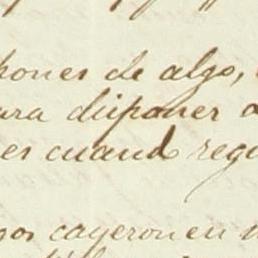 pones de algo,
ara disponer a
es cuand regu
gos cayeron en